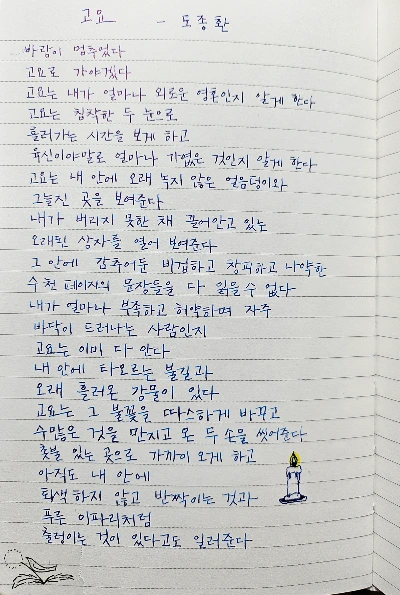 고요 - 도종환
바람이 멈추었다
고요로 가야겠다
고요는 내가 얼마나 외로운 영혼인지 알게 한다
고요는 침착한 두 눈으로
흘러가는 시간을 보게 하고
육신이야말로 얼마나 가엾은 것인지 알게 한다
고요는 내 안에 오래 녹지 않은 얼음덩이와
그늘진 곳을 보여준다
내가 버리지 못한 채 끌어안고 있는
오래된 상자를 열어 보여준다
그 안에 감추어둔 비겁하고 창피하고 나약한
수천 페이지의 문장들을 다 읽을 수 없다
내가 얼마나 부족하고 허약하며 자주
바닥이 드러나는 사람인지
고요는 이미 다 안다
내 안에 타오르는 불길과
오래 흘러온 강물이 있다
고요는 그 불꽃을 따스하게 바꾸고
수많은 것을 만지고 온 두 손을 씻어준다
촛불 있는 곳으로 가까이 오게 하고
아직도 내 안에
퇴색하지 않고 반짝이는 것과
푸른 이파리처럼
출렁이는 것이 있다고도 일러준다